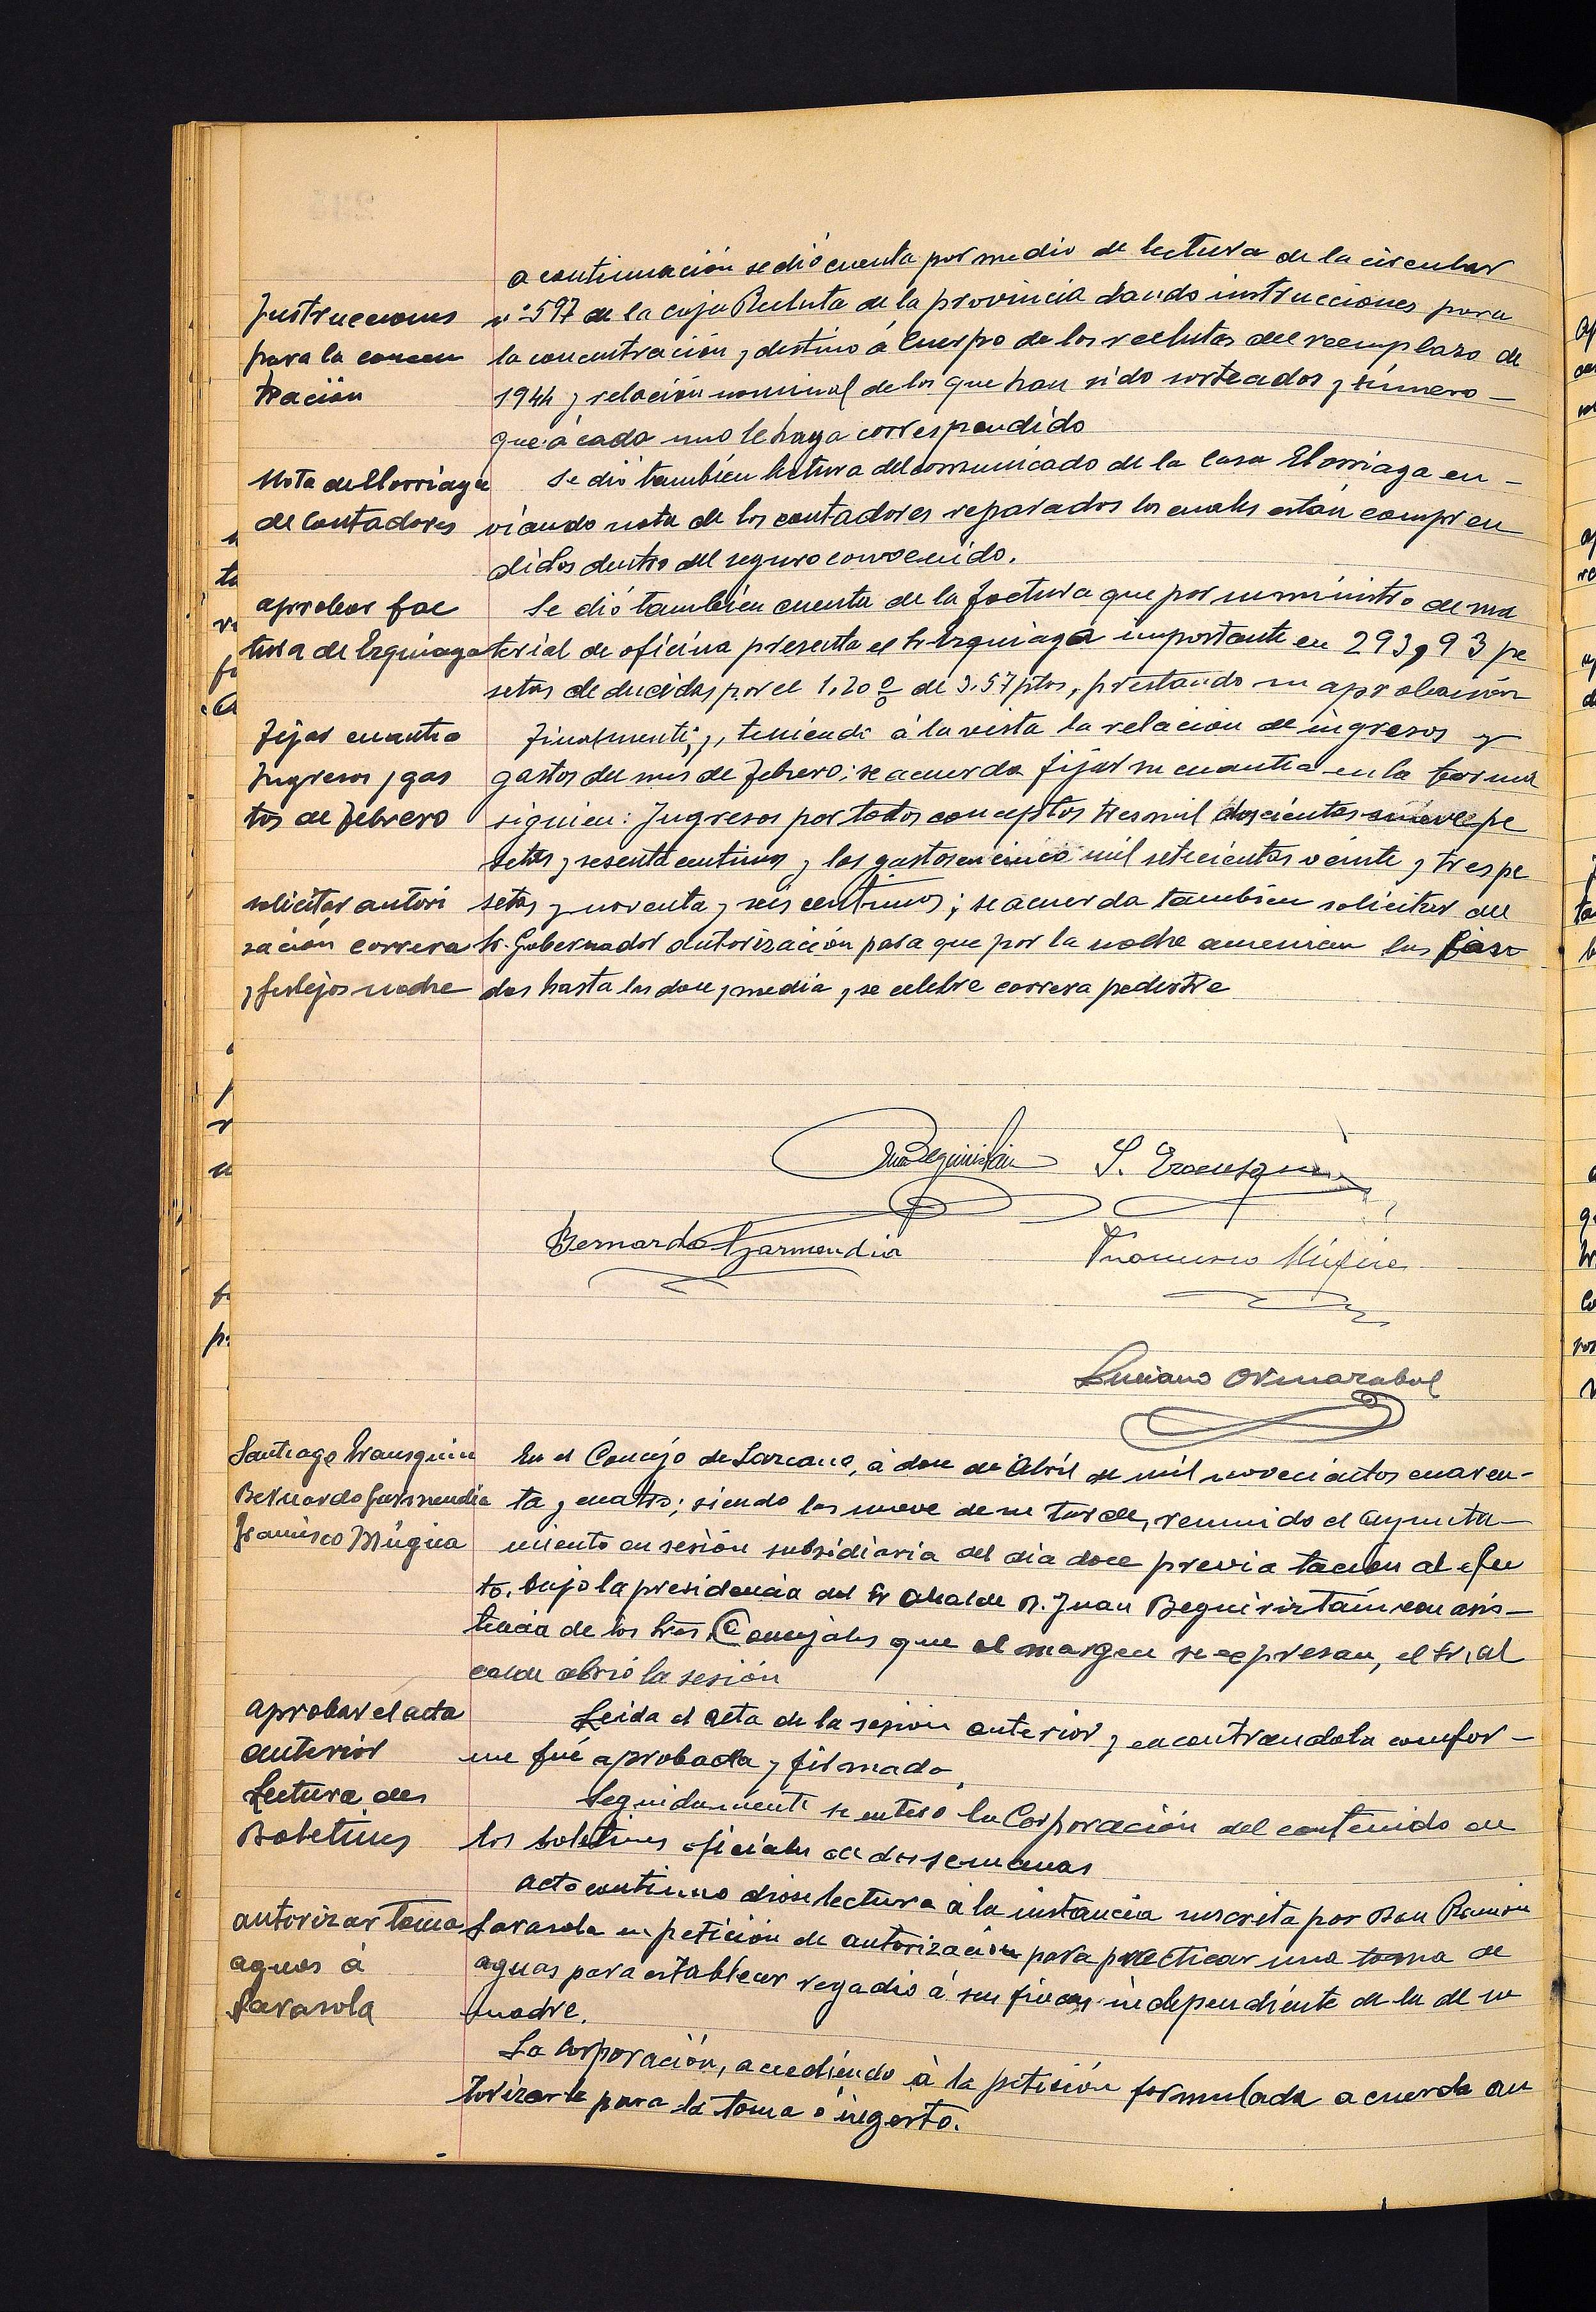 a continuación se dió cuenta por medio de lectura de la circular
Instrucciones
nº 597 de la caja Recluta de la provincia dando instrucciones para
para la concen
la concentración y destino á Cuerpo de los reclutas del reemplazo de
tración
1944 y relación nominal de los que han sido sorteados y número
que á cada uno le haya correspondido
Nota de Elorriaga
Se dió también lectura del comunicado de la Casa Elorriaga en-
de Contadores
viando nota de los contadores reparados los cuales están compren
didos dentro del seguro convenido.
aprobar fac
Se dió también cuenta de la factura que por suministro de ma
tura de Izquiaga
terial de oficina presenta el Sr Izquiaga importante en 293,93 pe
setas deducidas por el 1,20 % de 3.57 ptas, prestando su aprobación
Fijar cuantia
Finalmente, y, teniendo á la vista la relación de ingresos y
Ingresos y gas
gastos del mes de Febrero; se acuerda fijar su cuantia en la forma
tos de Febrero
siguien: Ingresos por todos conceptos tres mil doscientas nueve pe
setas y sesenta centimos y los gastos en cinco mil setecientas veinte y tres pe
solicitar autori
setas y noventa y seis centimos; se acuerda también solicitar del
zación carrera
Sr. Gobernador autorización para que por la noche amenicen las
y festejos noche
das hasta las doce y media y se celebre carrera pedestre
Juan Beguiristain
S. Irausquin
Bernardo Garmendia
Francisco Múgica
Luciano Ormazabal
Santiago Irausquin
En el Concejo de Lazcano, á doce de Abril de mil novecientos cuaren-
Bernardo Garmendia
ta y cuatro; siendo las nueve de su tarde, reunido el Ayunta-
Francisco Múgica
miento en sesión subsidiaria del dia doce previa tacion al efec
to, bajo la presidencia del Sr Alcalde D. Juan Beguiristain con asis-
tencia de los Sres. Concejales que al margen se expresan, el Sr. Al
calde abrió la sesión
aprobar el acta
Leida el acta de la sesión anterior y encontrandola confor-
anterior
me fué aprobada y firmada.
Lectura de
Seguidamente se enteró la Corporación del contenido de
Boletines
los boletines oficiales de dos semanas
acto continuo dióse lectura á la instancia suscrita por Don Ramón
autorizar toma
Sarasola en petición de autorización para practicar una toma de
aguas á
aguas para establecer regadio á sus fincas independiente de la de su
Sarasola
madre.
La Corporación, accediendo á la petición formulada acuerda au
torizarle para la toma ó ingerto.